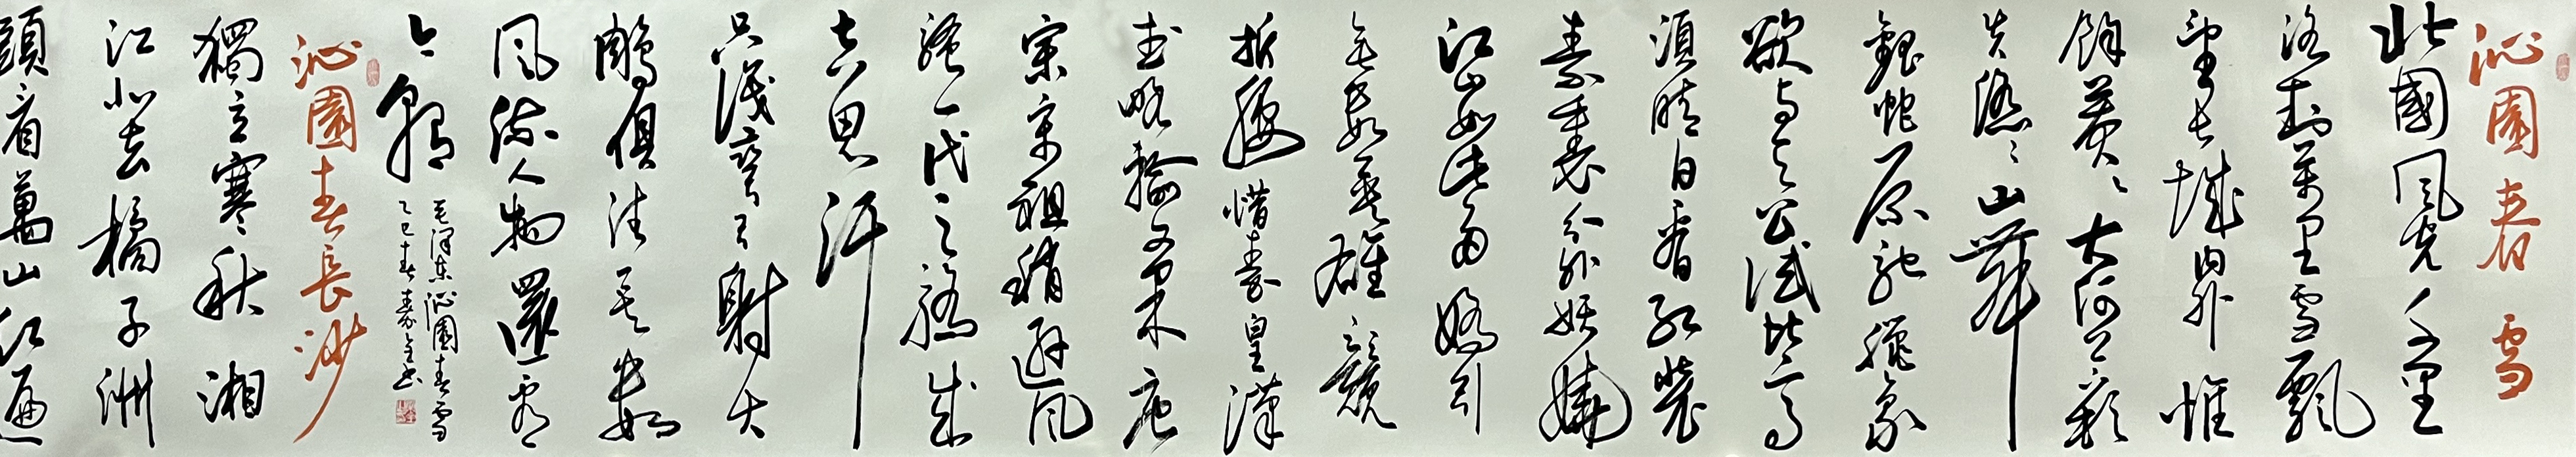 沁園春 雪
北國風光千里
冰封萬里雪飄
望長城內外惟
餘莽々大河上下頓
失滔々山舞
銀蛇原馳蠟象
欲與天公試比高
須晴日看紅裝
素裹分外妖嬈
江山如此多嬌引
無數英雄競
折腰惜秦皇漢
武略輸文采唐
宋宗祖稍遜風
騷一代天驕成
吉思汗
只識彎弓射大
鵰俱往矣數
風流人物還看
今朝
毛澤東沁園春雪
乙巳春
沁園春長沙
獨立寒秋湘
江北去橘子洲
頭看萬山紅遍